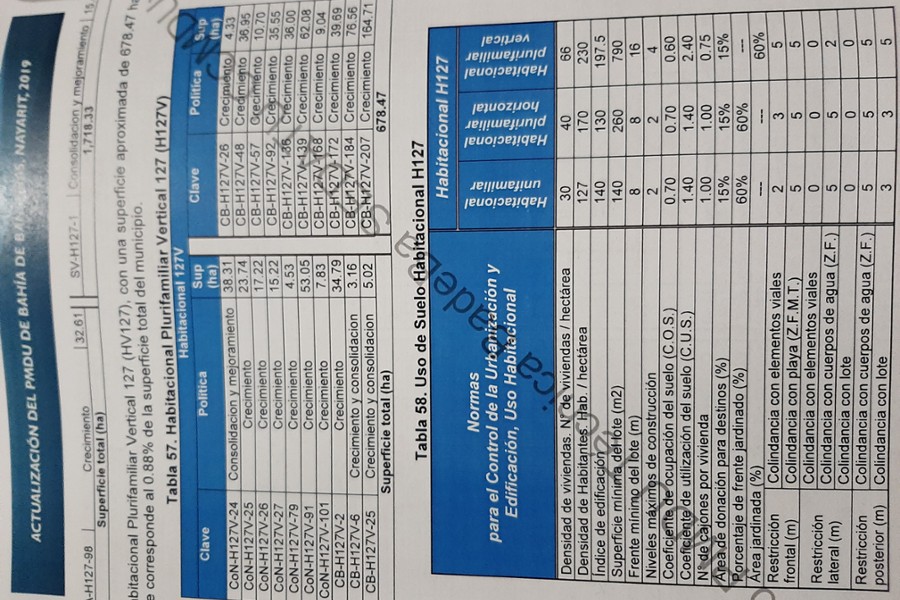 ACTUALIZACIÓN DEL PMDU DE BAHÍA DE NAYARIT, 2019
-H127-98 Crecimiento 32.61 SV-H127-1 Consolidacion y mejoramiento 15
Superficie total (ha) 1,718.33
bitacional Plurifamiliar Vertical 127 (HV127), con una superficie aproximada de 678.47 ha
e corresponde al 0.88% de la superficie total del municipio.
Tabla 57. Habitacional Plurifamiliar Vertical 127 (H127V)
Habitacional 127V
Clave Política Sup (ha) Clave Política Sup (ha)
CoN-H127V-24 Consolidacion y mejoramiento 38.31 CB-H127V-26 Crecimiento 4.33
CoN-H127V-25 Crecimiento 23.74 CB-H127V-48 Crecimiento 36.95
CoN-H127V-26 Crecimiento 17.22 CB-H127V-57 Crecimiento 10.70
CoN-H127V-27 Crecimiento 15.22 CB-H127V-92 Crecimiento 35.55
CoN-H127V-79 Crecimiento 4.53 CB-H127V-136 Crecimiento 36.00
CoN-H127V-91 Crecimiento 53.05 CB-H127V-139 Crecimiento 62.08
CoN-H127V-101 Crecimiento 7.83 CB-H127V-168 Crecimiento 9.04
CB-H127V-2 Crecimiento 34.79 CB-H127V-172 Crecimiento 39.69
CB-H127V-6 Crecimiento y consolidacion 3.16 CB-H127V-184 Crecimiento 76.56
CB-H127V-25 Crecimiento y consolidacion 5.02 CB-H127V-207 Crecimiento 164.71
Superficie total (ha) 678.47
Tabla 58. Uso de Suelo Habitacional H127
Normas
para el Control de la Urbanización y
Edificación, Uso Habitacional
Habitacional H127
Habitacional unifamiliar Habitacional plurifamiliar horizontal Habitacional plurifamiliar vertical
Densidad de viviendas. N° de viviendas / hectárea 30 40 66
Densidad de Habitantes. Hab. / hectárea 127 170 230
Indice de edificación 140 130 197.5
Superficie mínima del lote (m2) 140 260 790
Frente mínimo del lote (m) 8 8 16
Niveles máximos de construcción 2 2 4
Coeficiente de ocupación del suelo (C.O.S.) 0.70 0.70 0.60
Coeficiente de utilización del suelo (C.U.S.) 1.40 1.40 2.40
N° de cajones por vivienda 1.00 1.00 0.75
Área de donación para destinos (%) 15% 15% 15%
Porcentaje de frente jardinado (%) 60% 60% ---
Área jardinada (%) --- --- 60%
Restricción frontal (m) Colindancia con elementos viales 2 3 5
Colindancia con playa (Z.F.M.T.) 5 5 5
Restricción lateral (m) Colindancia con elementos viales 0 0 0
Colindancia con cuerpos de agua (Z.F.) 5 5 2
Colindancia con lote 0 0 0
Restricción posterior (m) Colindancia con cuerpos de agua (Z.F.) 5 5 5
Colindancia con lote 3 3 5